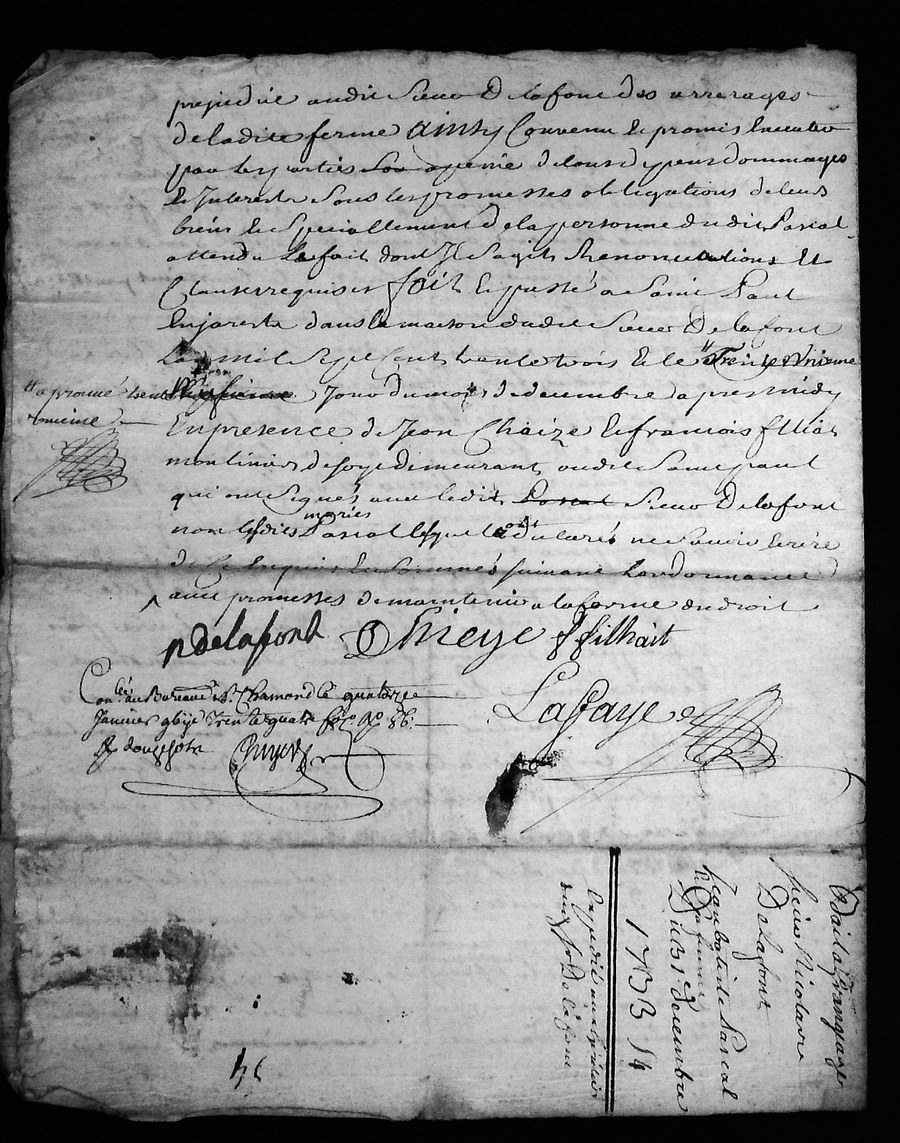 prejudice audit sieur Delafont des arrerages
de ladite ferme ainsy convenu et promis executer
par les parties a peine de tous depens dommages
et Interests sous les promesses obligations de leurs
biens et speciallement de la personne dudit Pascal
attendu le fait dont Il sagit Renonciations et
Clauses requises fait et passé a Saint Paul
En Jarest dans la maison dudit sieur Delafont
Lan mil sept cent trente trois et le Trente Unieme
Jour du mois de decembre apres midy
En presence de Jean Chaize et francois filliat
mouliniers de soye demeurant audit Saint paul
qui ont signés avec ledit Pascal sieur Delafont
non lesdits mariés Pascal lesquels ont declarés ne scavoir écrire
de ce enquis et sommés suivant Lordonnance
avec promesses de maintenir a la forme du droit
approuvé trente
unieme
n delafont Chieze f filhait
Con.lé au Bureau de St. Chamond le quatorze
Janvier trente quatre
Lafaye
Sieur Nicolas
Delafont
Jean batiste Pascal
et sa femme
Du 31 decembre
1733
Delafont